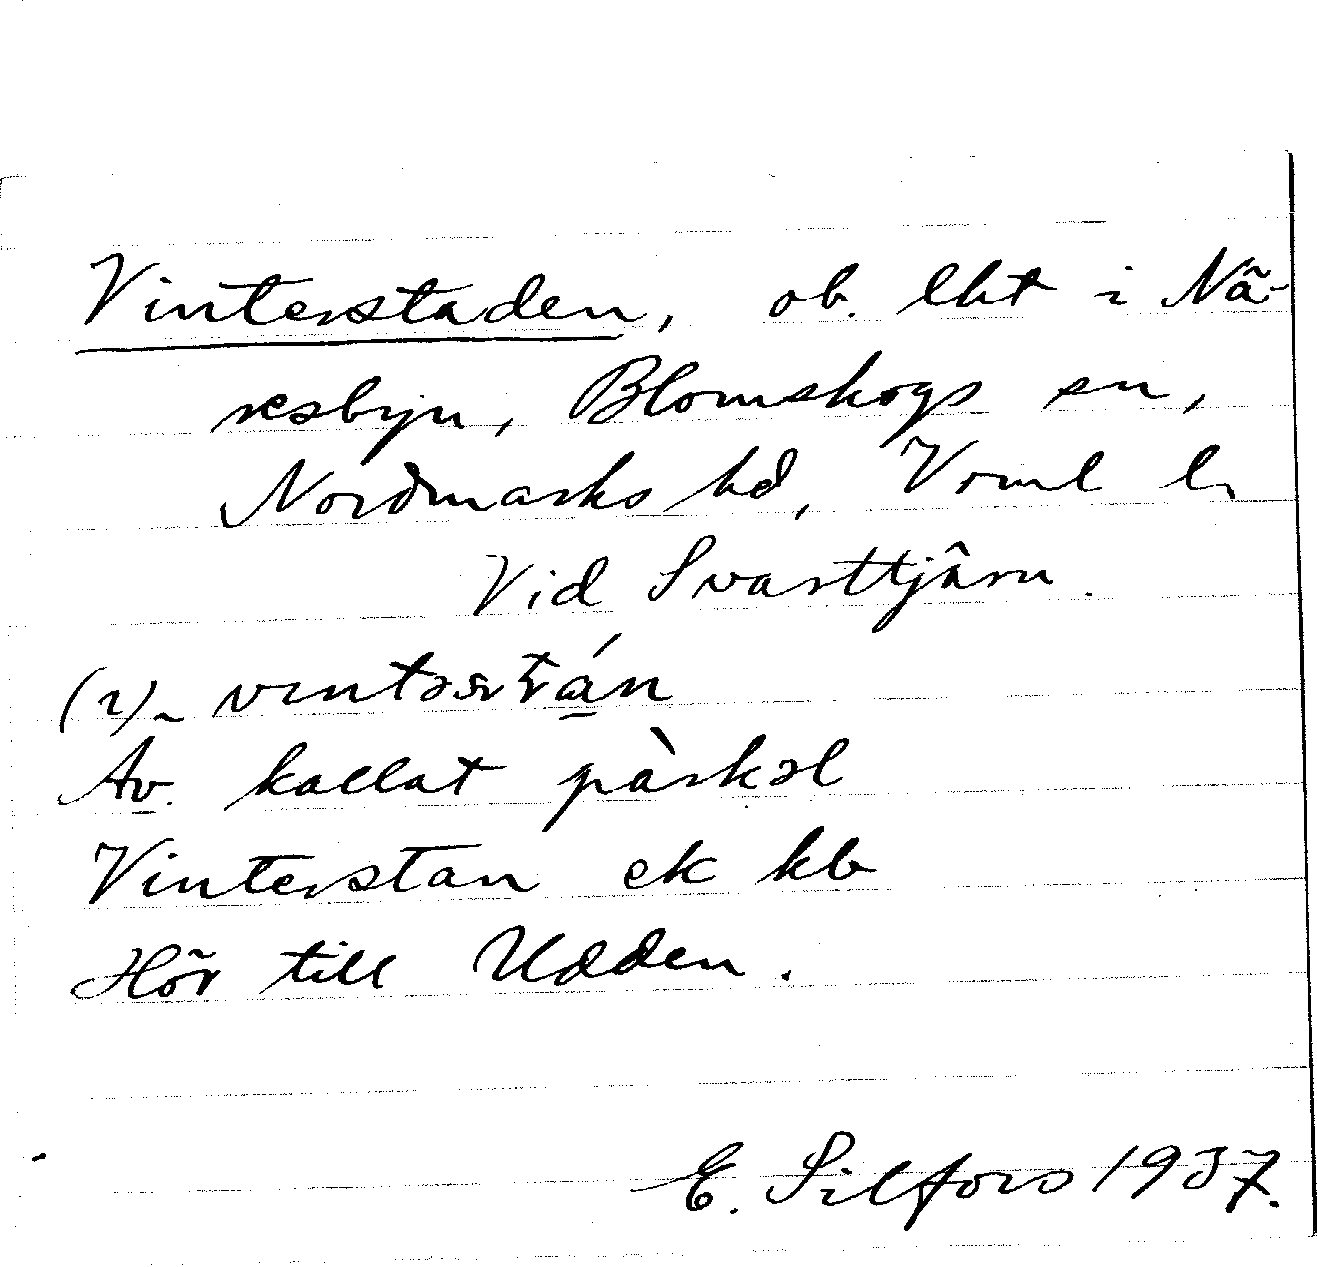 Vinterstaden, ob. lht i Nä-
resbyn, Blomskogs sn,
Nordmarks hd, Vrml l.
Vid Svarttjärn.
(i)
Av. kallat pàrkəl
Vinterstan ek kb
Hör till Udden.
E. Silfors 1937.